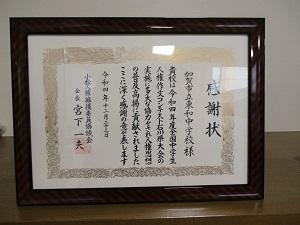 感謝状
加賀市立東和中学校様
貴校は令和四年度全国中学生
人権作文コンテスト石川県大会の
実施に多大な協力をされ人権思想
の普及高揚に貢献されました
ここに深く感謝の意を表します
令和四年十二月二十三日
小松人権擁護委員協議会
会長 宮下一夫